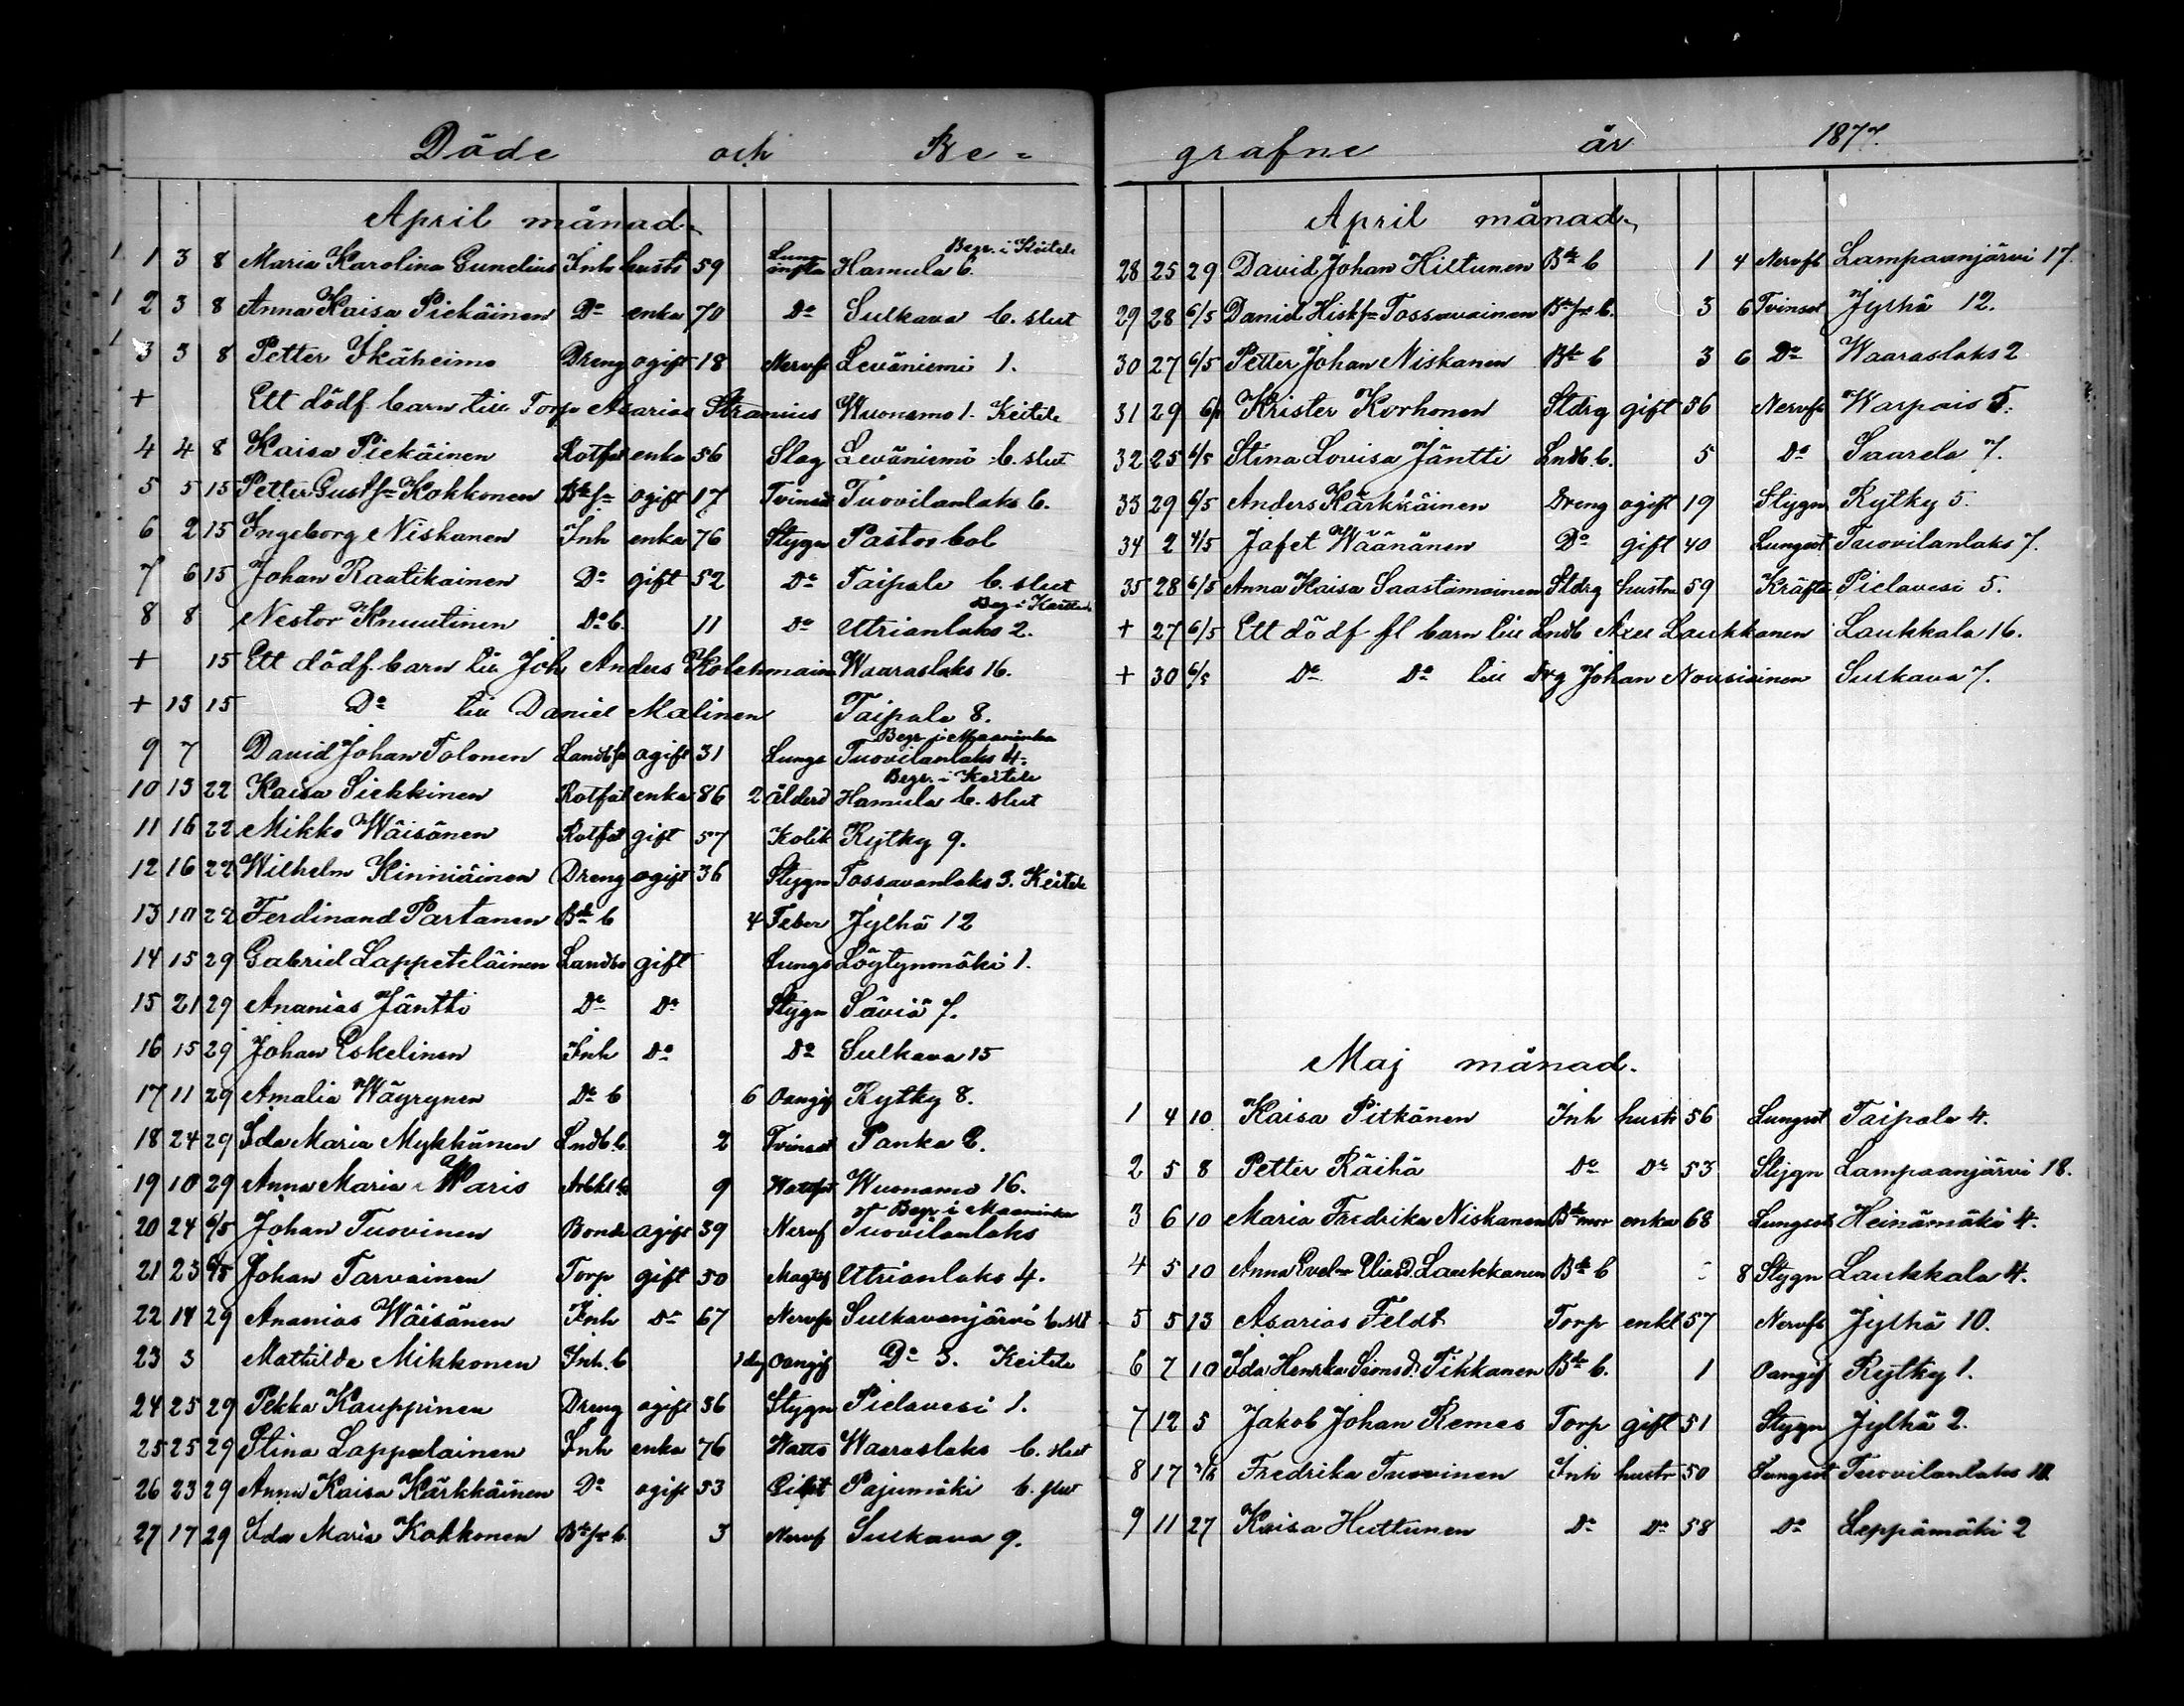 Döde och Be-
April månad.
1 1 3 8 Maria Karolina Gunelius Inh hustr 59 Lung infla Hamula 6. Begr. i Keitele
1 2 3 8 Anna Kaisa Piekäinen Do enka 70 Do Sulkava b. slut
1 3 3 8 Petter Ikäheimo Dreng ogift 18 Nervf Leväniemi 1.
+ Ett dödf. barn till Torp Asarias Stranius Wuonamo 1. Keitele
4 4 8 Kaisa Piekäinen Rotfat enka 56 Slag Leväniemi b. slut
5 5 15 Petter Gustfsn Kokkonen Bdesn ogift 17 Tvinsot Tuovilanlaks 6.
6 2 15 Ingeborg Niskanen Inh enka 76 Stygn Pastorbol
7 6 15 Johan Rautikainen Do gift 52 Do Taipale b. slut
8 8 Nestor Knuutinen Do b. 11 Do Utrianlaks 2. Beg i
+ 15 Ett dödf. barn till Joh Anders Kolehmain Waaraslaks 16.
+ 13 15 Do till Daniel Malinen Taipale 8.
9 7 David Johan Tolonen Landbsn ogift 31 Lungs Tuovilanlaks 4. Begr. i Maaninka
10 13 22 Kaisa Siekkinen Rotfat enka 86 2 ålderd Hamula b. slut Begr. i Keitele
11 16 22 Mikko Wäisänen Rotfat gift 57 Kolik Rytky 9.
12 16 22 Wilhelm Kinniäinen Dreng ogift 36 Stygn Tossavanlaks 3. Keitele
13 10 22 Ferdinand Partanen Bde b 4 Feber Jylhä 12
14 15 29 Gabriel Lappeteläinen Landbo gift Lungs Löytynmäki 1.
15 21 29 Ananias Jäntti Do Do Stygn Säviä 7.
16 15 29 Johan Eskelinen Inh Do Do Sulkava 15
17 11 29 Amalia Wäyrynen Do b 6 Oangif Rytky 8.
18 24 29 Ida Maria Mykkänen Lndb b. 2 Tvinsot Panka 2.
19 10 29 Anna Maria Waris 9 Wattsot Wuonamo 16.
20 24 6/5 Johan Tuovinen Bonde ogift 39 Nervf Tuovilanlaks Begr i Maaninka
21 23 6/5 Johan Tarvainen Torp gift 50 Utrianlaks 4.
22 14 29 Ananias Wäisänen Inh Do 67 Nervfb Sulkavanjärvi b. slt
23 3 Mathilda Mikkonen Inh. b 1 dg oangif Do 3. Keitele
24 25 29 Pekka Kauppinen Dreng ogift 36 Stygn Pielavesi 1.
25 25 29 Stina Lappalainen Inh enka 76 Watts Waaraslaks b. slut
26 23 29 Anna Kaisa Kärkkäinen Do ogift 53 Pajumäki b. slut
27 17 29 Ida Maria Kokkonen Bdesn b 3 Nervf Sulkava 9.
grafne år 1877.
April månad.
28 25 29 David Johan Hiltunen Bde b 1 4 Nervfb Lampaanjärvi 17.
29 28 6/5 Daniel Hiskfsn Tossavainen Bdesn b. 3 6 Tvinsot Jylhä 12.
30 27 6/5 Petter Johan Niskanen Bde b 3 6 Do Waaraslaks 2
31 29 6/5 Krister Korhonen Stdrg gift 56 Nervfb Warpais 5.
32 25 6/5 Stina Lovisa Jäntti Lndb. b. 5 Do Saarela 7.
33 29 6/5 Anders Kärkkäinen Dreng ogift 19 Stygn Rytky 5.
34 2 4/5 Jafet Wäänänen Do gift 40 Lungsot Tuovilanlaks 7.
35 28 6/5 Anna Kaisa Saastamoinen Stdrg hustru 59 Kräfta Pielavesi 5.
+ 27 6/5 Ett dödf fl barn till Lndb Axel Laukkanen Laukkala 16.
+ 30 6/5 Do Do till Drg Johan Nousiainen Sulkava 7.
Maj månad.
1 4 10 Kaisa Pitkänen Inh hustr 56 Lungsot Taipale 4.
2 5 8 Petter Räihä Do Do 53 Stygn Lampaanjärvi 18.
3 6 10 Maria Fredrika Niskanen Bdemor enka 68 Lungsot Heinämäki 4.
4 5 10 Anna Evel Eliasd. Laukkanen Bde b 8 Stygn Laukkala 4.
5 5 13 Asarias Feldt Torp enkl 57 Nervfb Jylhä 10.
6 7 10 Ida Henrika Simsd. Tikkanen Bde b. 1 Oangif Rytky 1.
7 12 5 Jakob Johan Remes Torp gift 51 Stygn Jylhä 2.
8 17 Fredrika Tuovinen Inh hustr 50 Lungsot Tuovilanlaks
9 11 27 Kaisa Huttunen Do Do 58 Do Leppämäki 2